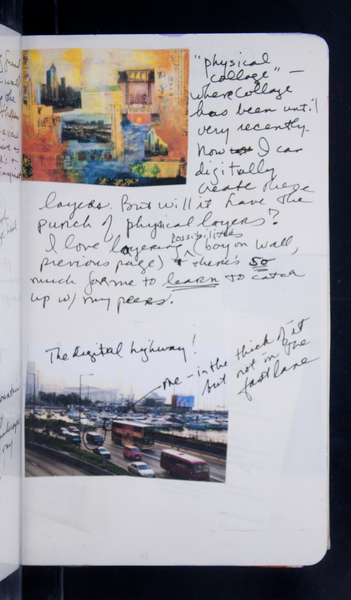 "physical
collage" —
where collage
has been until
very recently.
Now I can
digitally
create these
layers. But will it have the
punch of physical layers?
I love layering possibilities (boy on wall,
previous page) & there's so
much for me to learn to catch
up w/ my peers.
The digital highway!
me - in the thick of it
but not in the
fast lane